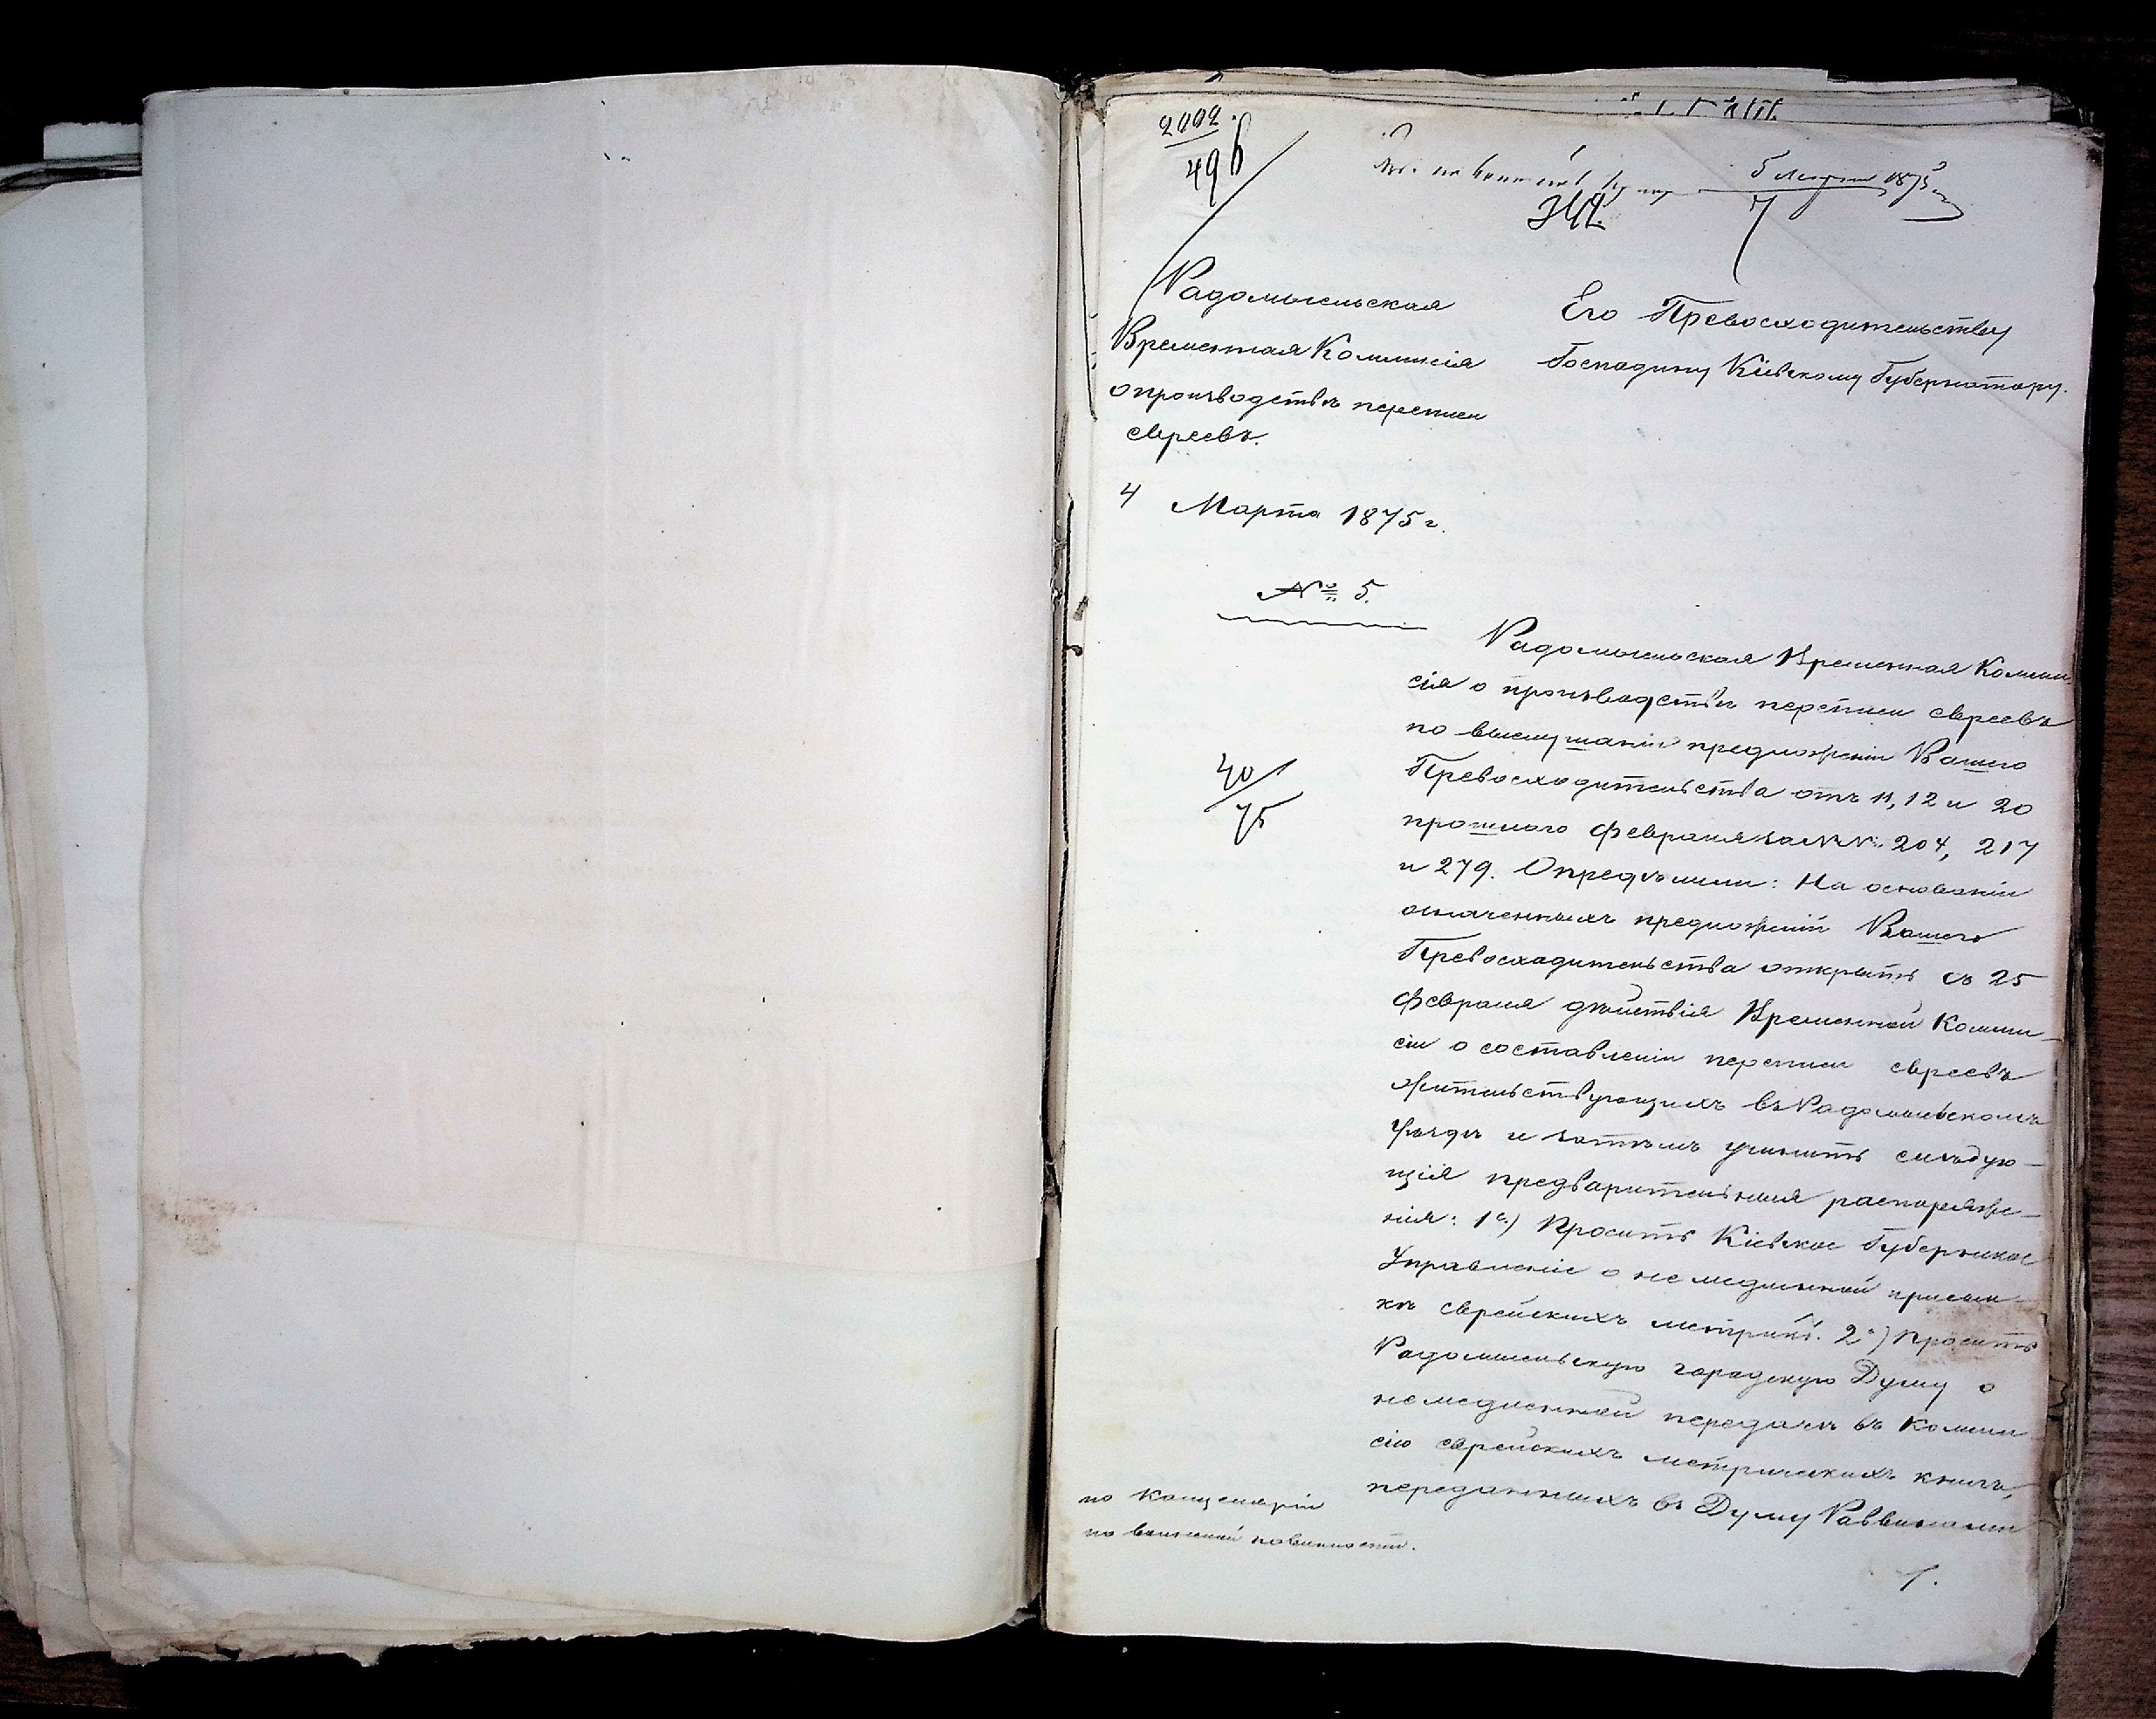 2002
496
5 Марта 1875
7
Радомысльская
Временная Коммисія
о производствѣ переписи
евреевъ.
Его Превосходительству
Господину Кіевскому Губернатору.
4 Марта 1875 г.
№ 5.
40
75
Радомысльская Временная Комми
сія о производствѣ переписи евреевъ
по выслушаніи предложеніи Вашего
Превосходительства отъ 11, 12 и 20
прошлаго февраля за №№ 204, 217
и 279. Опредѣлили: На основаніи
означенныхъ предложеній Вашего
Превосходительства открыть съ 25
февраля дѣйствія Временной Комми-
сіи о составленіи переписи евреевъ
жительствующихъ въ Радомысльскомъ
уѣздѣ и затѣмъ учинить слѣдую-
щія предварительныя распоряже-
нія: 1е.) Просить Кіевское Губернское
Управленіе о немедленной присыл-
кѣ еврейскихъ метрикъ. 2е) Просить
Радомысльскую городскую Думу о
немедленной передачѣ въ Комми
сію еврейскихъ метрическихъ книгъ,
переданныхъ въ Думу Раввинами
по Канцеляріи
по воинской повинности.
1.